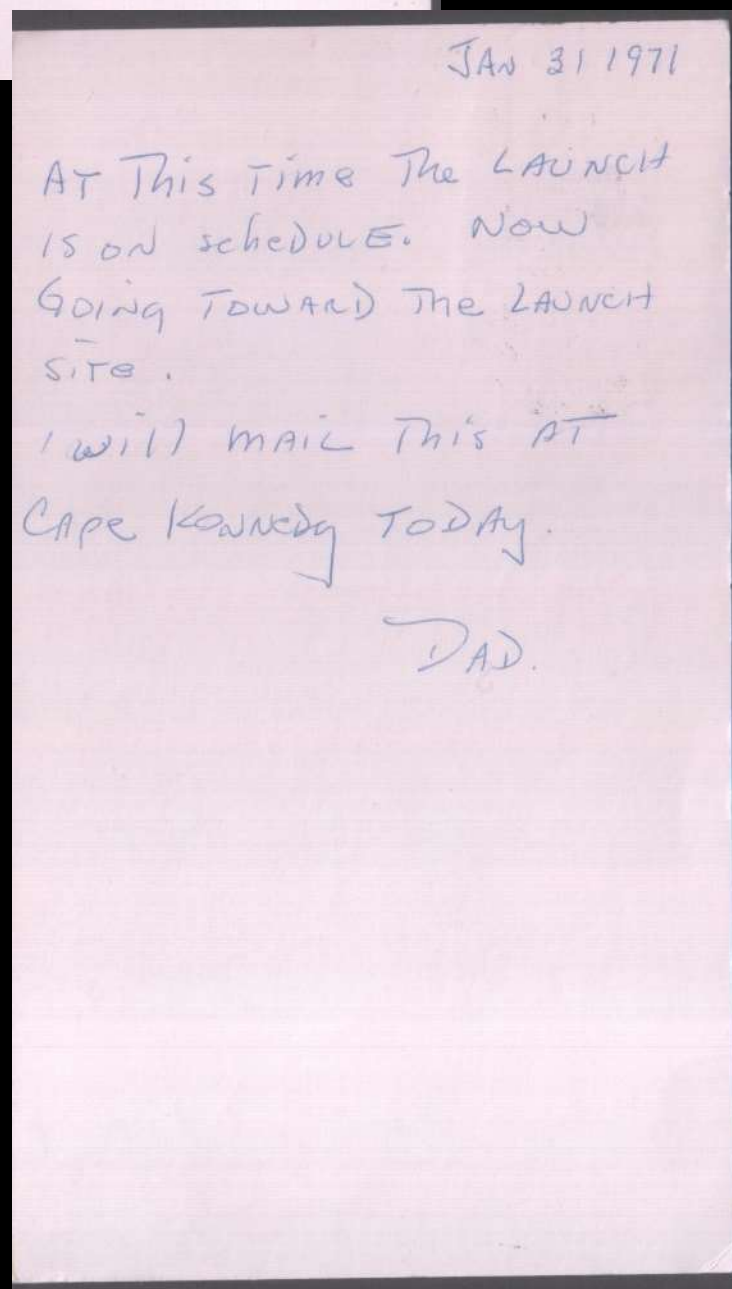 JAN 31 1971
AT This Time The LAUNCH
IS ON scheDULE. NOW
GOING TOWARD The LAUNCH
SITE.
I will MAIL This AT
CAPe KeNNeDy TODAy.
DAD.